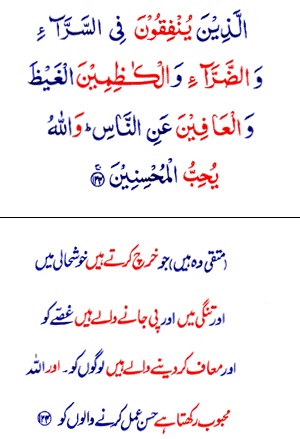 الَّذِيْنَ يُنْفِقُوْنَ فِى السَّرَّآءِ
وَالضَّرَّآءِ وَالْكٰظِمِيْنَ الْغَيْظَ
وَالْعَافِيْنَ عَنِ النَّاسِ ؕ وَاللّٰهُ
يُحِبُّ الْمُحْسِنِيْنَ ﴿۱۳۴﴾
(متقی وہ ہیں) جو خرچ کرتے ہیں خوشحالی میں
اور تنگی میں اور پی جانے والے ہیں غصّے کو
اور معاف کر دینے والے ہیں لوگوں کو۔ اور اللہ
محبوب رکھتا ہے حسن عمل کرنے والوں کو ﴿۱۳۴﴾